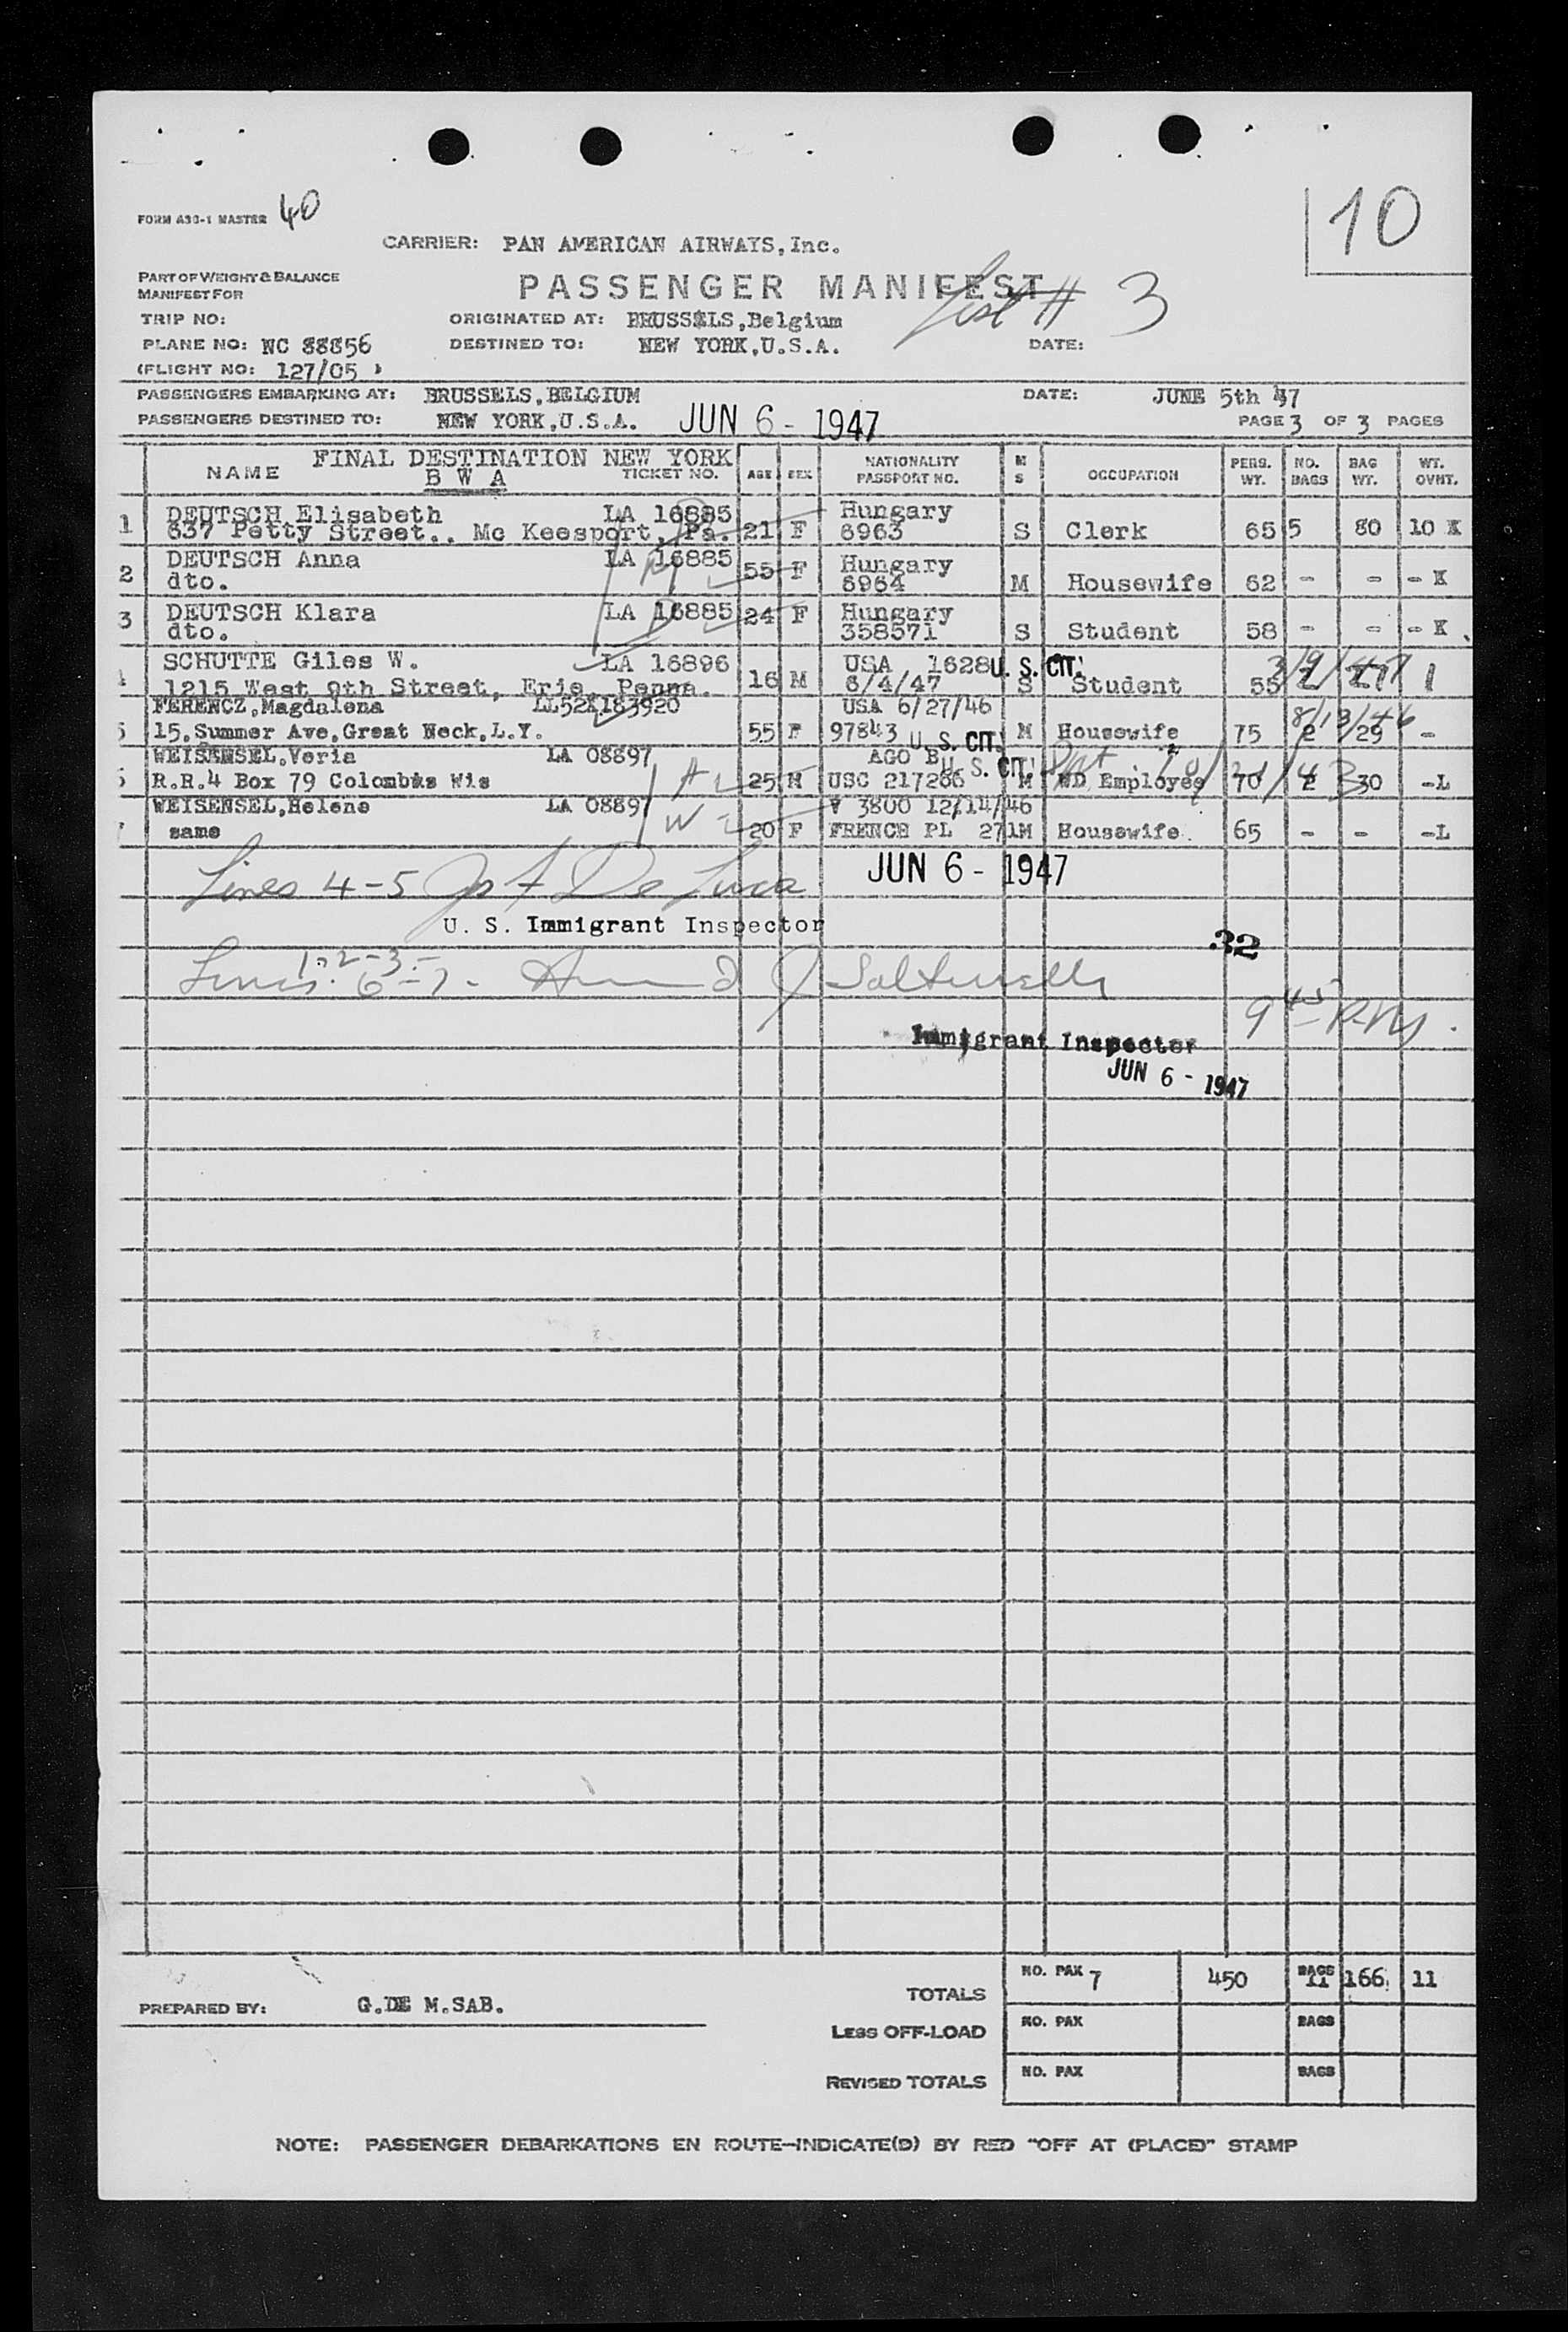 FORM A30-1 MASTER 40
10
CARRIER: PAN AMERICAN AIRWAYS, Inc.
PART OF WEIGHT & BALANCE
MANIFEST FOR
PASSENGER MANIFEST
List # 3
TRIP NO:
ORIGINATED AT: BRUSSELS, Belgium
PLANE NO: NC 88856
DESTINED TO: NEW YORK, U.S.A.
DATE:
(FLIGHT NO: 127/05 )
PASSENGERS EMBARKING AT: BRUSSELS, BELGIUM
DATE: JUNE 5th 47
PASSENGERS DESTINED TO: NEW YORK, U.S.A. JUN 6 - 1947
PAGE 3 OF 3 PAGES
FINAL DESTINATION NEW YORK
NAME B W A TICKET NO. AGE SEX NATIONALITY PASSPORT NO. M S OCCUPATION PERS. WT. NO. BAGS BAG WT. WT. OVHT.
1 DEUTSCH Elisabeth LA 16885 Hungary
637 Petty Street.. Mc Keesport, Pa. 21 F 6963 S Clerk 65 5 80 10 K
2 DEUTSCH Anna LA 16885 55 F Hungary
dto. 6964 M Housewife 62 - - - K
3 DEUTSCH Klara LA 16885 24 F Hungary
dto. 358571 S Student 58 - - - K
SCHUTTE Giles W. LA 16896 USA 1628 U. S. CIT. 3/9/47
1215 West 9th Street, Erie, Penna. 16 M 6/4/47 S Student 55 1
FERENCZ, Magdalena USA 6/27/46 8/13/46
15, Summer Ave, Great Neck, L.Y. 55 F 97843 U. S. CIT. M Housewife 75 2 29 -
WEISENSEL, Veria LA 08897 AGO B U. S. CIT.
R.R.4 Box 79 Colombus Wis 25 M USC 217286 M WD Employee 70 2 30 -L
WEISENSEL, Helene LA 08897 V 3800 12/14/46
same 20 F FRENCH PL 271 M Housewife 65 - - -L
Lines 4-5 De Luca JUN 6 - 1947
U. S. Immigrant Inspector
32
1-2-3-
Lines 6-7-
9 45 P.M.
Immigrant Inspector
JUN 6 - 1947
TOTALS NO. PAX 7 450 BAGS 11 166 11
PREPARED BY: G.DE M.SAB.
LESS OFF-LOAD NO. PAX BAGS
REVISED TOTALS NO. PAX BAGS
NOTE: PASSENGER DEBARKATIONS EN ROUTE-INDICATE(D) BY RED "OFF AT (PLACE)" STAMP